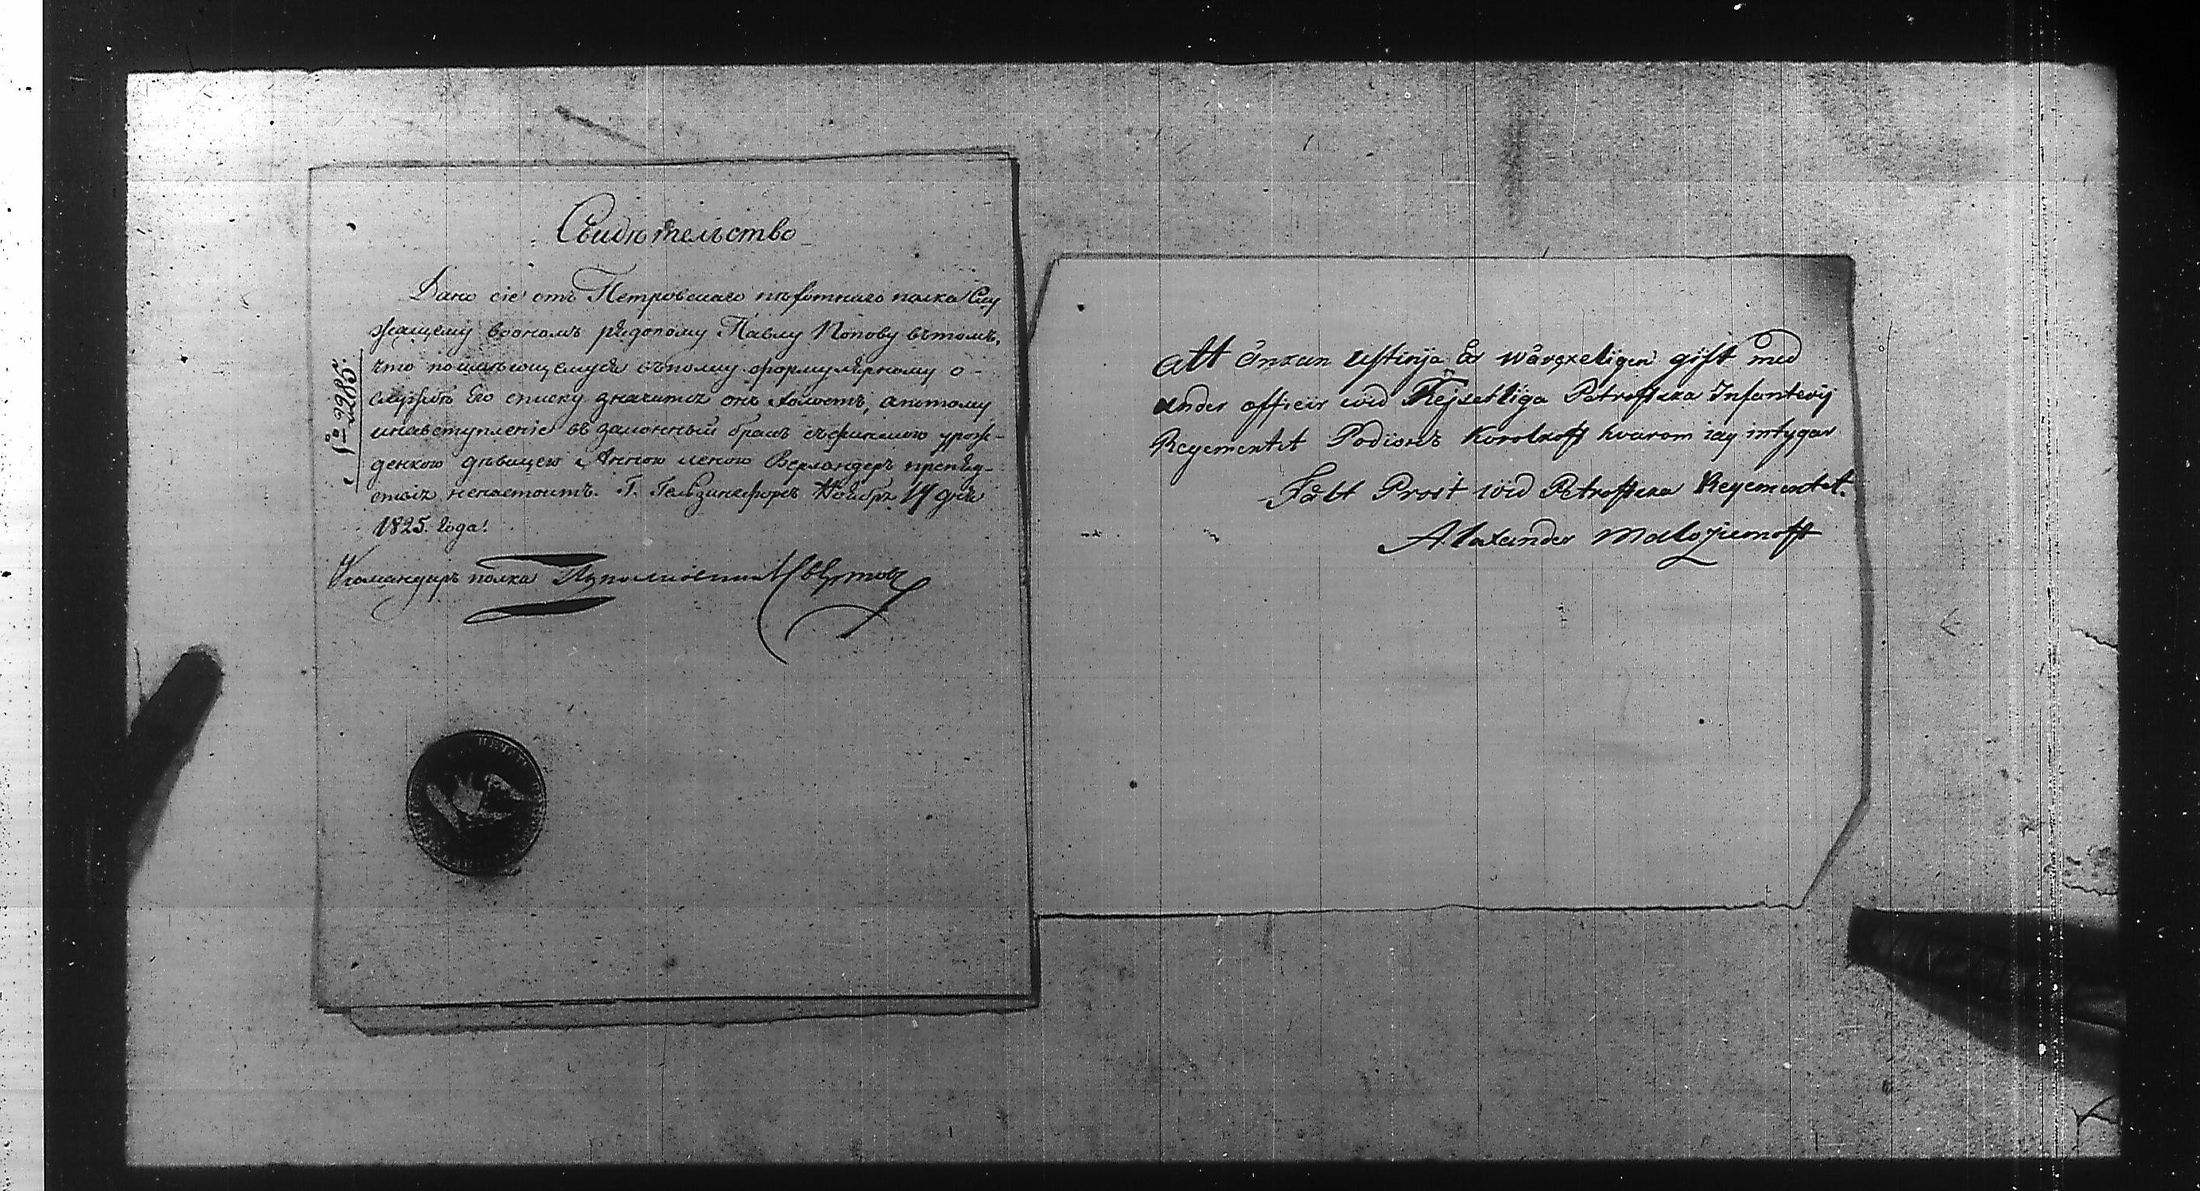 Свидѣтельство
Дано сіе отъ Петровскаго пѣхотнаго полка Слу
жащему воономъ рядовому Павлу Попову вътомъ,
что поимѣющемуся въполку формулярному о-
службѣ Его списку значится онъ холостъ, апотому
инавступленіе въ законный бракъ съфинскою урож-
денкою дѣвицею Анною Леною Верландеръ препят-
ствія ненастоитъ. Г. Гельзингфорсъ Ноября 14 дня
1825. Года!
№ 2285.
Командиръ полка Подполковникъ
Att Enkan Ustinja Er wärckeligen gift med
under officeir wid Kejserliga Petrofska Infanterij
Regementet Korotkoff hvarom iag intygar
Fält Prost wid Petrofska Regementet.
Alexander Malozjemoff